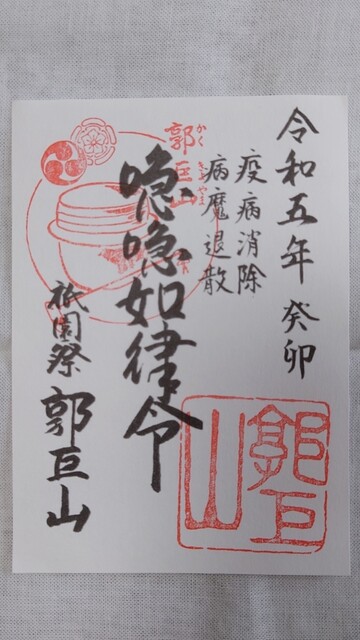 令和五年 癸卯
疫病消除
病魔退散
郭巨山
かくきょやま
喼喼如律令
祇園祭 郭巨山
郭巨山